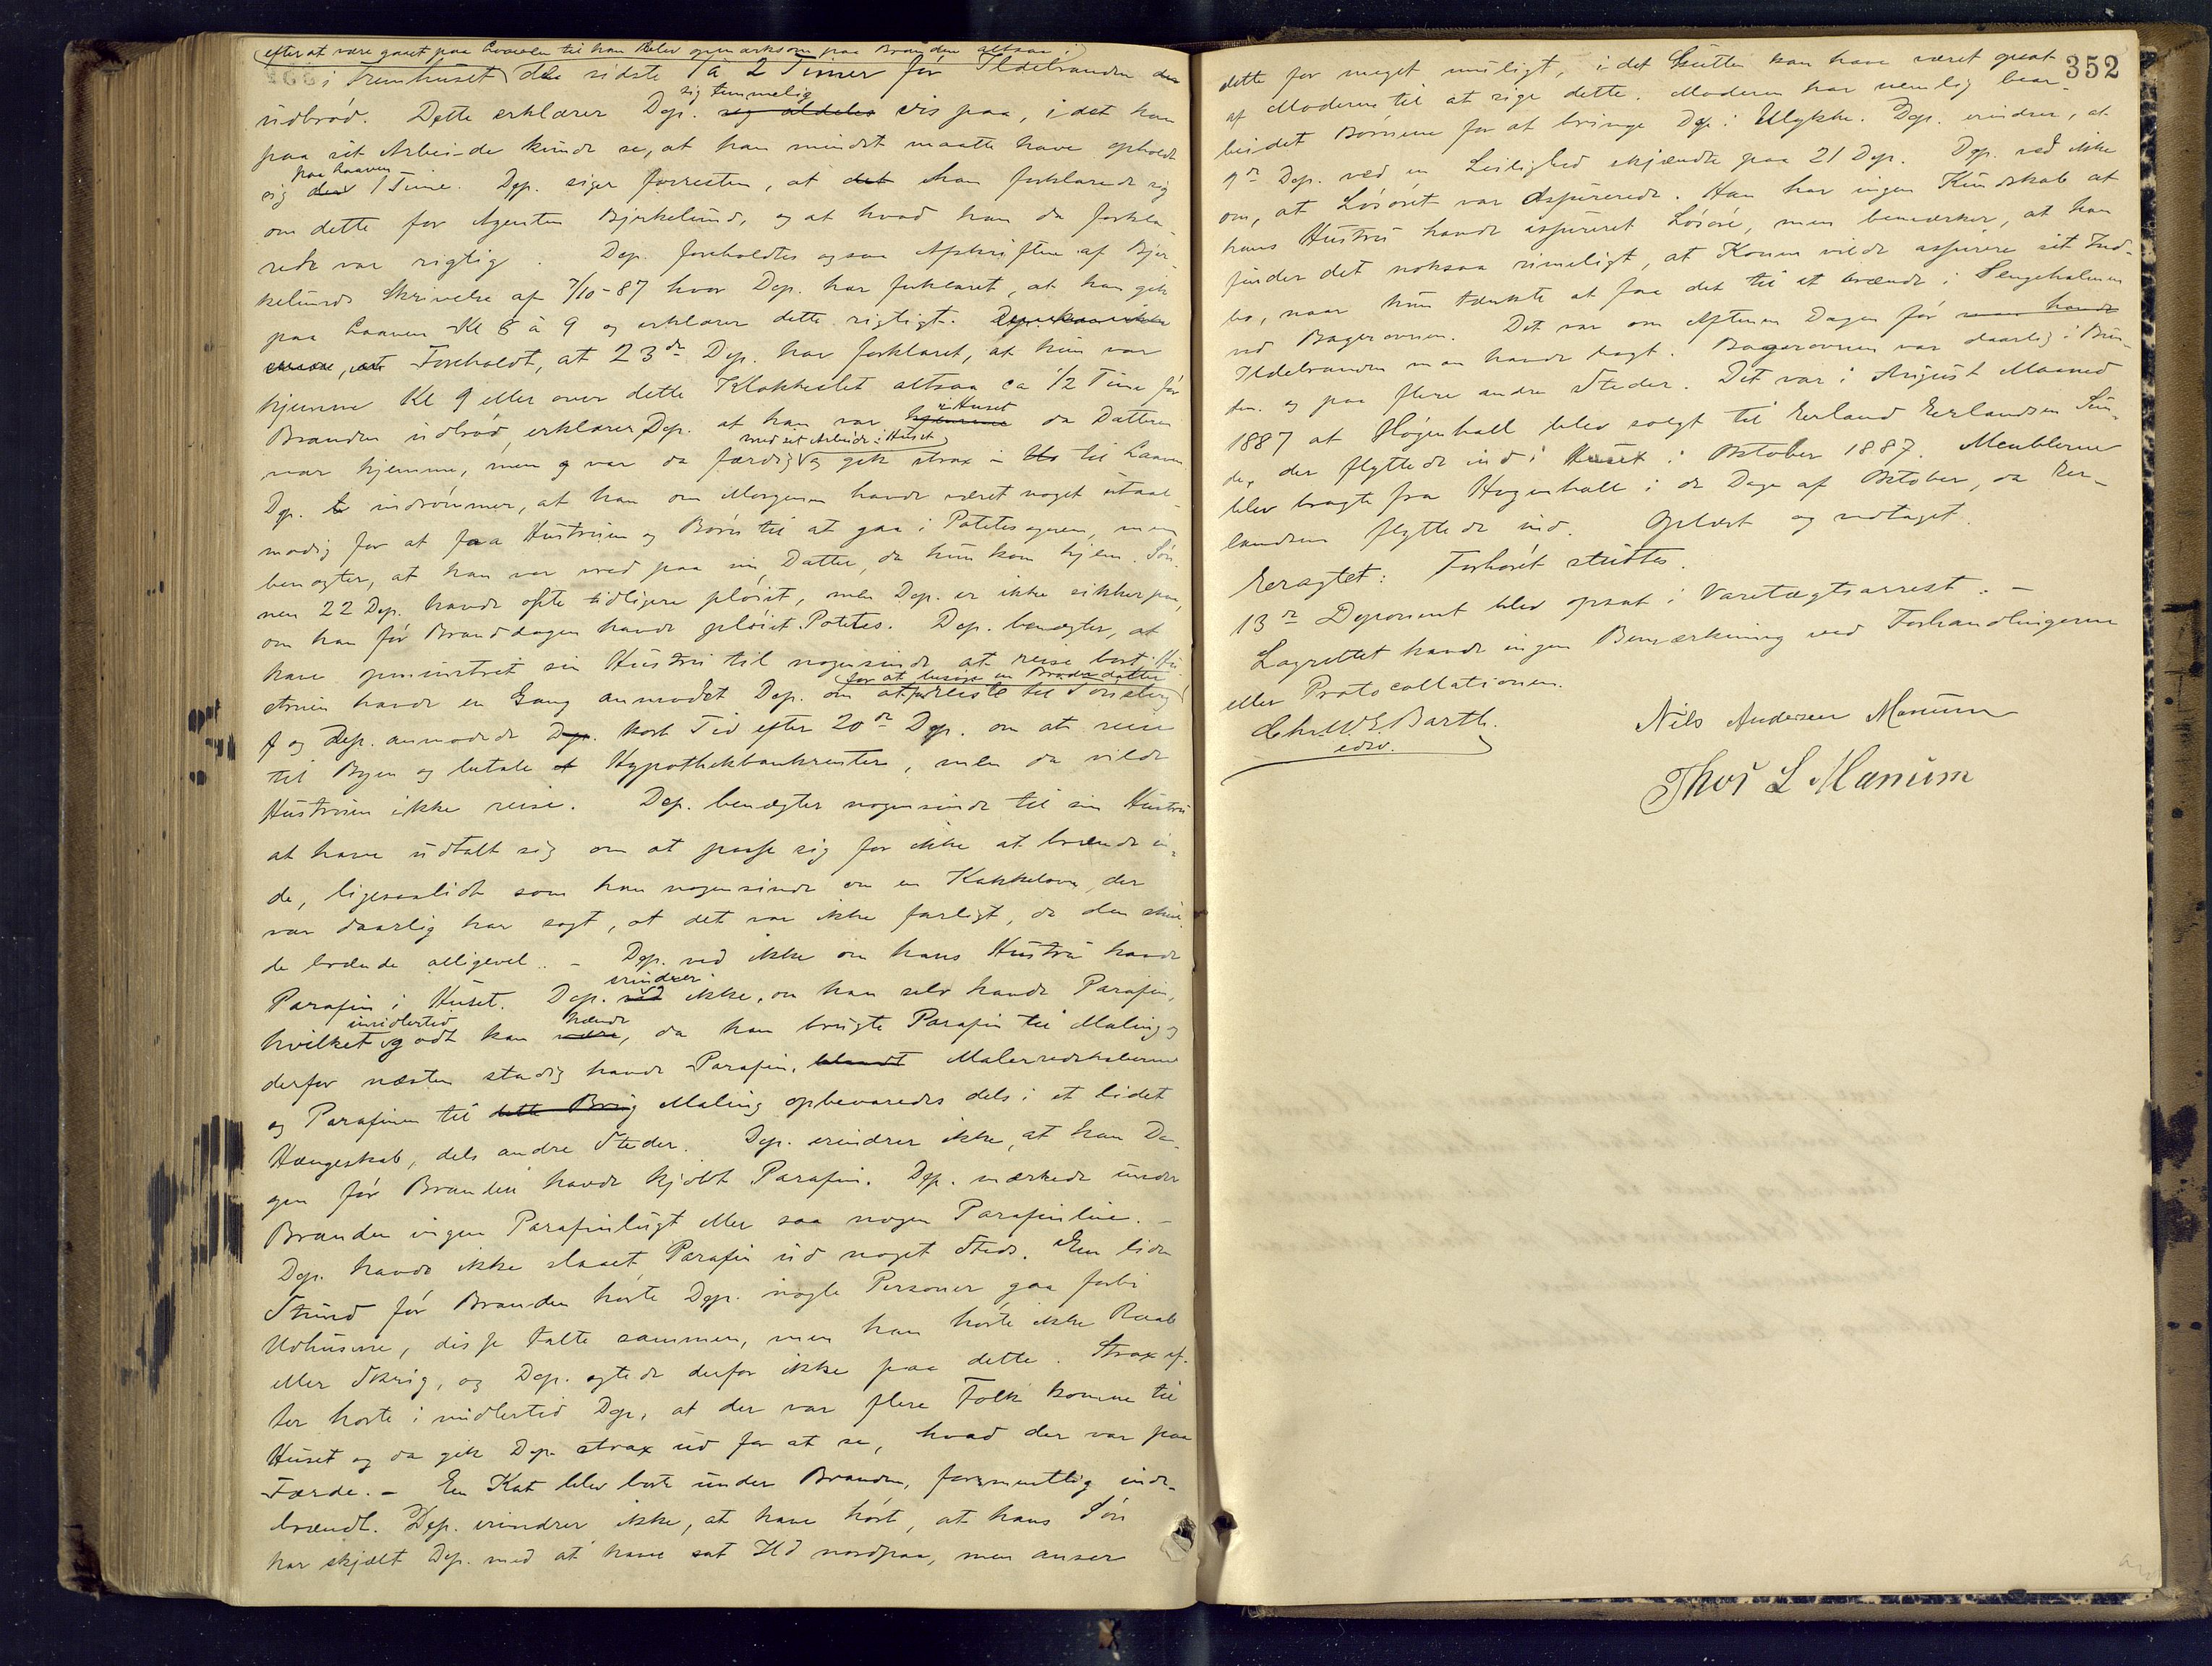 (efter at være gaaet paa Laaven til han blev opmærksom paa Branden altsaa i)
i Trenhuset de sidste 1 à 2 Timer før Ildebranden
udbrød. Dette erklærer Dep. sig temmelig sig aldeles vis paa, i det han
paa sit Arbeide kunde se, at han mindst maatte have opholdt
sig paa Laaven der 1 Time. Dep. siger forresten, at det han forklarede sig
om dette for Agenten Bjerkelund, og at hvad han da forkla-
rede var rigtig. Dep. foreholdtes ogsaa Afskriften af Bjer-
kelunds Skrivelse af 7/10-87 hvor Dep. har forklaret, at han gik
paa Laaven Kl 8 à 9 og erklærer dette rigtigt. Dep. kan ikke
Foreholdt, at 23de Dep. har forklaret, at hun var
hjemme Kl 9 eller over dette Klokkeslet altsaa ca 1/2 Time før
Branden udbrød, erklærer Dep. at han var hjemme i Huset da Datteren
var hjemme, men og var da færdig med sit Arbeide i Huset og gik strax til Laaven
Dep. indrømmer, at han om Morgenen havde været noget utaal-
modig for at faa Hustruen og Børn til at gaa i Potetesageren, men
benegter, at han var vred paa sin Datter, da hun kom hjem. Søn-
nen 22 Dep. havde ofte tidligere pløiet, men Dep. er ikke sikker paa,
om han før Branddagen havde pløiet Potetes. Dep. benegter, at
have opmuntret sin Hustru til nogensinde at reise bort. Hu-
struen havde en Gang anmodet Dep. om at reise til Tønsberg
for at besøge en Broderdatter
og Dep. anmodede Dep. kort Tid efter 20de Dep. om at reise
til Byen og betale Hypothekbankrenter, men da vilde
Hustruen ikke reise. Dep. benegter nogensinde til sin Hustru
at have udtalt sig om at passe sig for ikke at brænde in-
de, ligesaalidt som han nogensinde om en Kakkelovn, der
var daarlig har sagt, at det var ikke farligt, da den skul-
de brænde alligevel. - Dep. ved ikke om hans Hustru havde
Parafin i Huset. Dep. ved erindrer ikke, om han selv havde Parafin,
hvilket imidlertid godt kan være hænde, da han brugte Parafin til Maling og
derfor næsten stadig havde Parafin, blandt Malerredskaberne
og Parafinen til dette Brug Maling opbevaredes dels i et lidet
Hængeskab, dels andre Steder. Dep. erindrer ikke, at han Da-
gen før Branden havde kjøbt Parafin. Dep. mærkede under
Branden ingen Parafinlugt eller saa nogen Parafinlue. -
Dep. havde ikke slaaet Parafin ud noget Steds. En liden
Stund før Branden hørte Dep. nogle Personer gaa forbi
Udhusene, disse talte sammen, men han hørte ikke Raab
eller Skrig, og Dep. agtede derfor ikke paa dette. Strax ef-
ter hørte imidlertid Dep, at der var flere Folk komne til
Huset og da gik Dep. strax ud for at se, hvad der var paa
Færde. - En Kat blev borte under Branden, formentlig inde-
brændt. Dep. erindrer ikke, at have hørt, at hans Søn
har skjældt Dep. med at have sat Ild nordpaa, men anser
352
dette for meget muligt, i det Gutten kan have været opsat
af Moderen til at sige dette. Moderen har nemlig bear-
beidet Børnene for at bringe Dep. i Ulykke. Dep. erindrer, at
9de Dep. ved en Leilighed skjændte paa 21 Dep. Dep. ved ikke
om, at Løsøret var assureret. Han har ingen Kundskab at
hans Hustru havde assureret Løsøre, men bemærker, at han
finder det noksaa rimeligt, at Konen vilde assurere sit Ind-
bo, naar hun tænkte at faa det til at brænde i Sengehalmen
ved Bagerovnen. Det var om Aftenen Dagen før man havde
Ildebranden man havde bagt. Bagerovnen var daarlig i Bun-
den og paa flere andre Steder. Det var i August Maaned
1887 at Høgenhall blev solgt til Erland Erlandsen Sun-
de, der flyttede ind i Huset i Oktober 1887. Meublerne
blev bragte fra Høgenhall i de Dage af Oktober, da Er-
landsen flyttede ind. Oplæst og vedtaget.
Eragtet: Forhøret sluttes.
13de Deponent blev opsat i Varetægtsarrest. -
Lagrettet havde ingen Bemærkning ved Forhandlingerne
eller Protocollationen.
Chr. W. E. Barth.
edsv.
Nils Andersen Manum
Thos L Manum